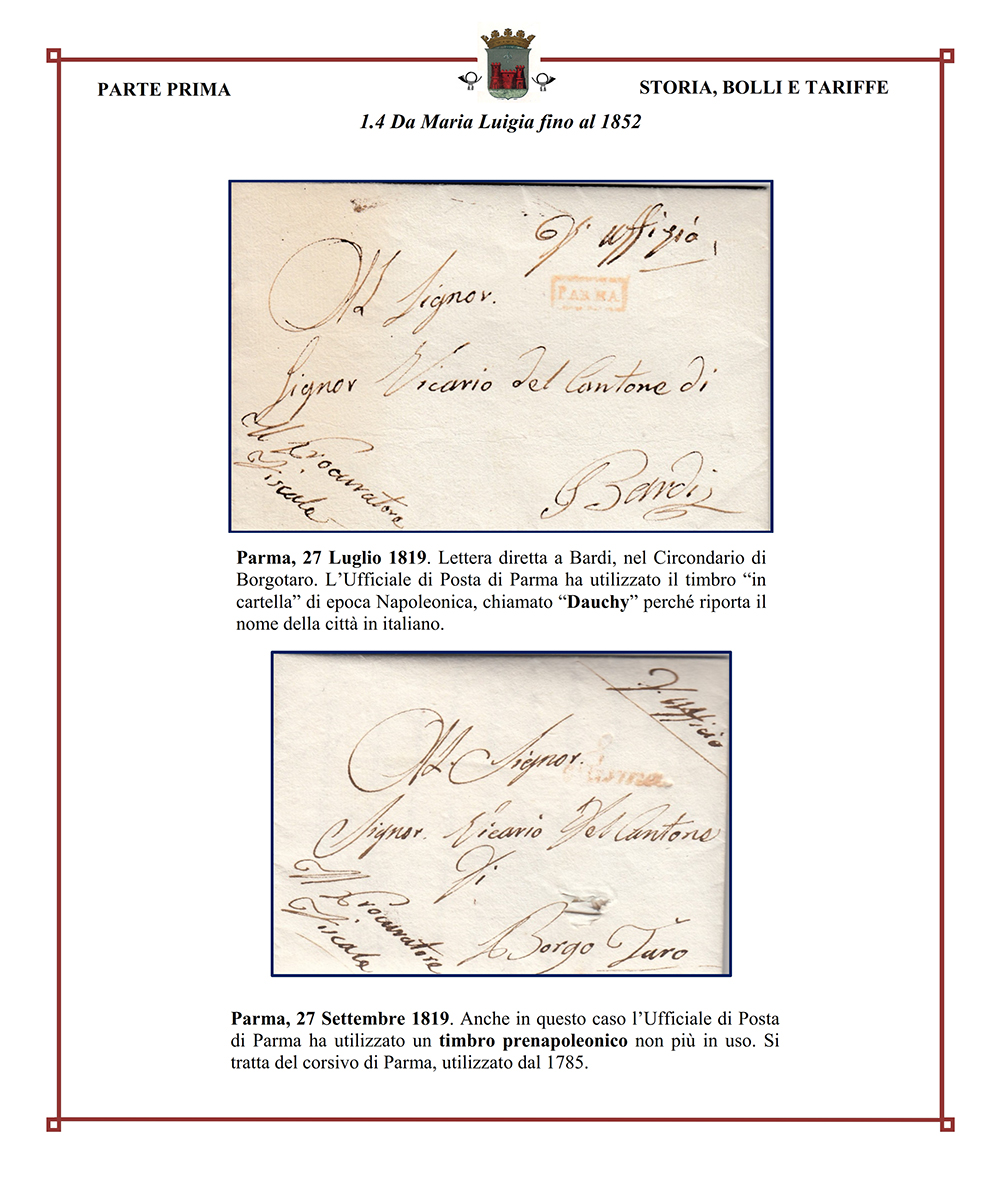 PARTE PRIMA
STORIA, BOLLI E TARIFFE
1.4 Da Maria Luigia fino al 1852
D'uffizio
Al Signor.
PARMA
Signor Vicario del Cantone di
Il Procuratore
Fiscale
Bardi
Parma, 27 Luglio 1819. Lettera diretta a Bardi, nel Circondario di
Borgotaro. L’Ufficiale di Posta di Parma ha utilizzato il timbro “in
cartella” di epoca Napoleonica, chiamato “Dauchy” perché riporta il
nome della città in italiano.
D'ufficio
Al Signor.
Parma
Signor. Vicario Del Cantone
Di
Il Procuratore
Fiscale
Borgo Taro
Parma, 27 Settembre 1819. Anche in questo caso l’Ufficiale di Posta
di Parma ha utilizzato un timbro prenapoleonico non più in uso. Si
tratta del corsivo di Parma, utilizzato dal 1785.